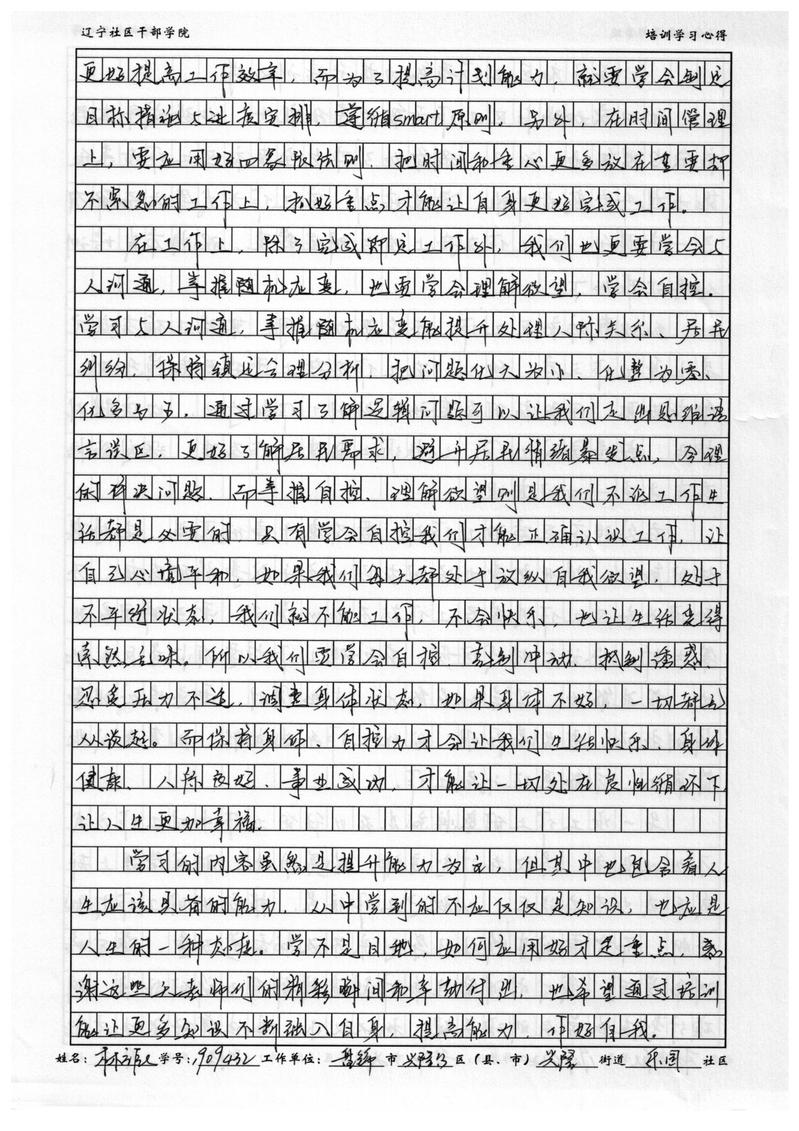 辽宁社区干部学院 培训学习心得
更好提高工作效率，而为了提高计划能力，就要学会制定
目标措施与进度安排，遵循smart原则。另外，在时间管理
上，要应用好四象限法则，把时间和重心更多放在重要却
不紧急的工作上，抓好重点才能让自身更好完成工作。
在工作上，除了完成即定工作外，我们也更要学会与
人沟通，掌握随机应变，也要学会理解欲望，学会自控。
学习与人沟通，掌握随机应变能提升处理人际关系、居民
纠纷，保持镇定合理分析，把问题化大为小，化整为零
化多为少。通过学习了解逻辑问题可以让我们走出思维语
言误区，更好了解居民需求，避开居民情绪暴发点，合理
的解决问题。而掌握自控、理解欲望则是我们不论工作生
活都是必要的，只有学会自控我们才能正确认识工作，让
自己心境平和，如果我们每天都处于放纵自我欲望，处于
不平衡状态，我们就不能工作，不会快乐，也让生活变得
索然无味。所以我们要学会自控，克制冲动，抵制诱惑
忍受压力不适，调整身体状态，如果身体不好，一切都无
从谈起。而保持身体、自控力才会让我们生活快乐，身体
健康，人际良好，事业成功，才能让一切处在良性循环下
让人生更加幸福。
学习的内容虽然是提升能力为主，但其中也包含着人
生应该具备的能力，从中学到的不应仅仅是知识，也应是
人生的一种态度。学不是目地，如何应用好才是重点，感
谢这些天老师们的精彩瞬间和辛勤付出，也希望通过培训
能让更多知识不断融入自身，提高能力，作好自我。
姓名： 学号：1909432 工作单位：盘锦 市 兴隆台 区（县、市） 兴隆 街道 乐园 社区